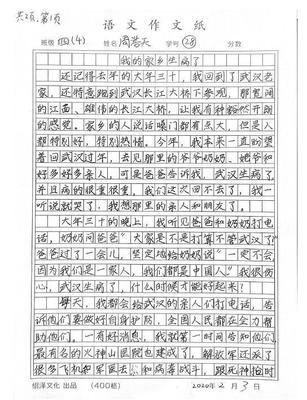 共2页,第1页
语文作文纸
班级 四(4) 姓名 周芸天 学号 28 分数
我的家乡生病了
还记得去年的大年三十,我回到了武汉老
家,还特意跑到武汉长江大桥下参观,那宽阔
的江面、雄伟的长江大桥,让我有种豁然开朗
的感觉。家乡的人说话嗓门都有点大,但是人
都特别好,特别热情。今年,我本来一直盼望
着回武汉过年,去见那里的爷爷奶奶、姥爷和
好多好多亲人,可是爸爸告诉我,武汉生病了,
并且病的很重很重,我们这次回不去了,我一
听说就哭了,我想那里的亲人和朋友了。
大年三十的晚上,我听见爸爸和奶奶打电
话,奶奶问爸爸"大家是不是打算不管武汉了?"
爸爸过了一会儿,坚定地给奶奶说"一定不会,
因为我们是一家人,我们都是中国人"我很伤
心,武汉生病了,什么时候才能好起来?
每天,我都会给武汉的亲人们打电话,告
诉他们要做好自身护防,全国人民都在全力帮
助他们。一有好消息,我就第一时间告知他们,
最有名的火神山医院也建成了,解放军还派了
很多飞机和军医去和病毒战斗,跟死神抢时
绍泽文化 出品 (400格) 2020年2月3日